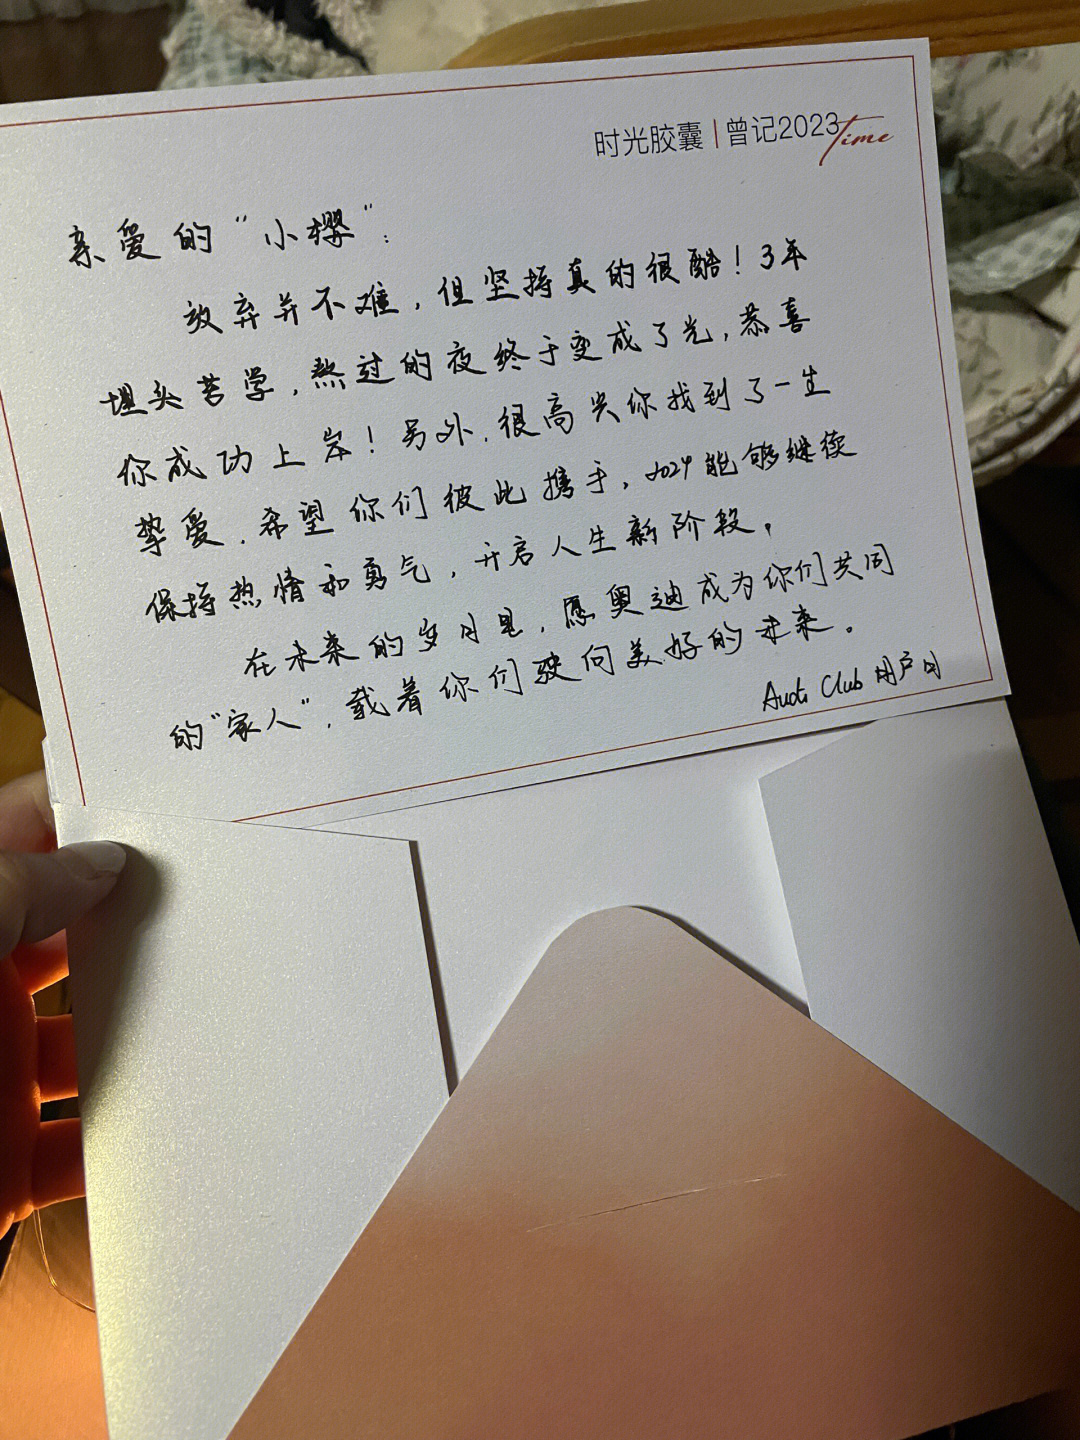 时光胶囊|曾记2023
Time
亲爱的“小樱”：
放弃并不难，但坚持真的很酷！3年
埋头苦学，熬过的夜终于变成了光，恭喜
你成功上岸！另外，很高兴你找到了一生
挚爱．希望你们彼此携手，2024能够继续
保持热情和勇气，开启人生新阶段，
在未来的岁月里，愿奥迪成为你们共同
的“家人”，载着你们驶向美好的未来。
Audi Club 用户